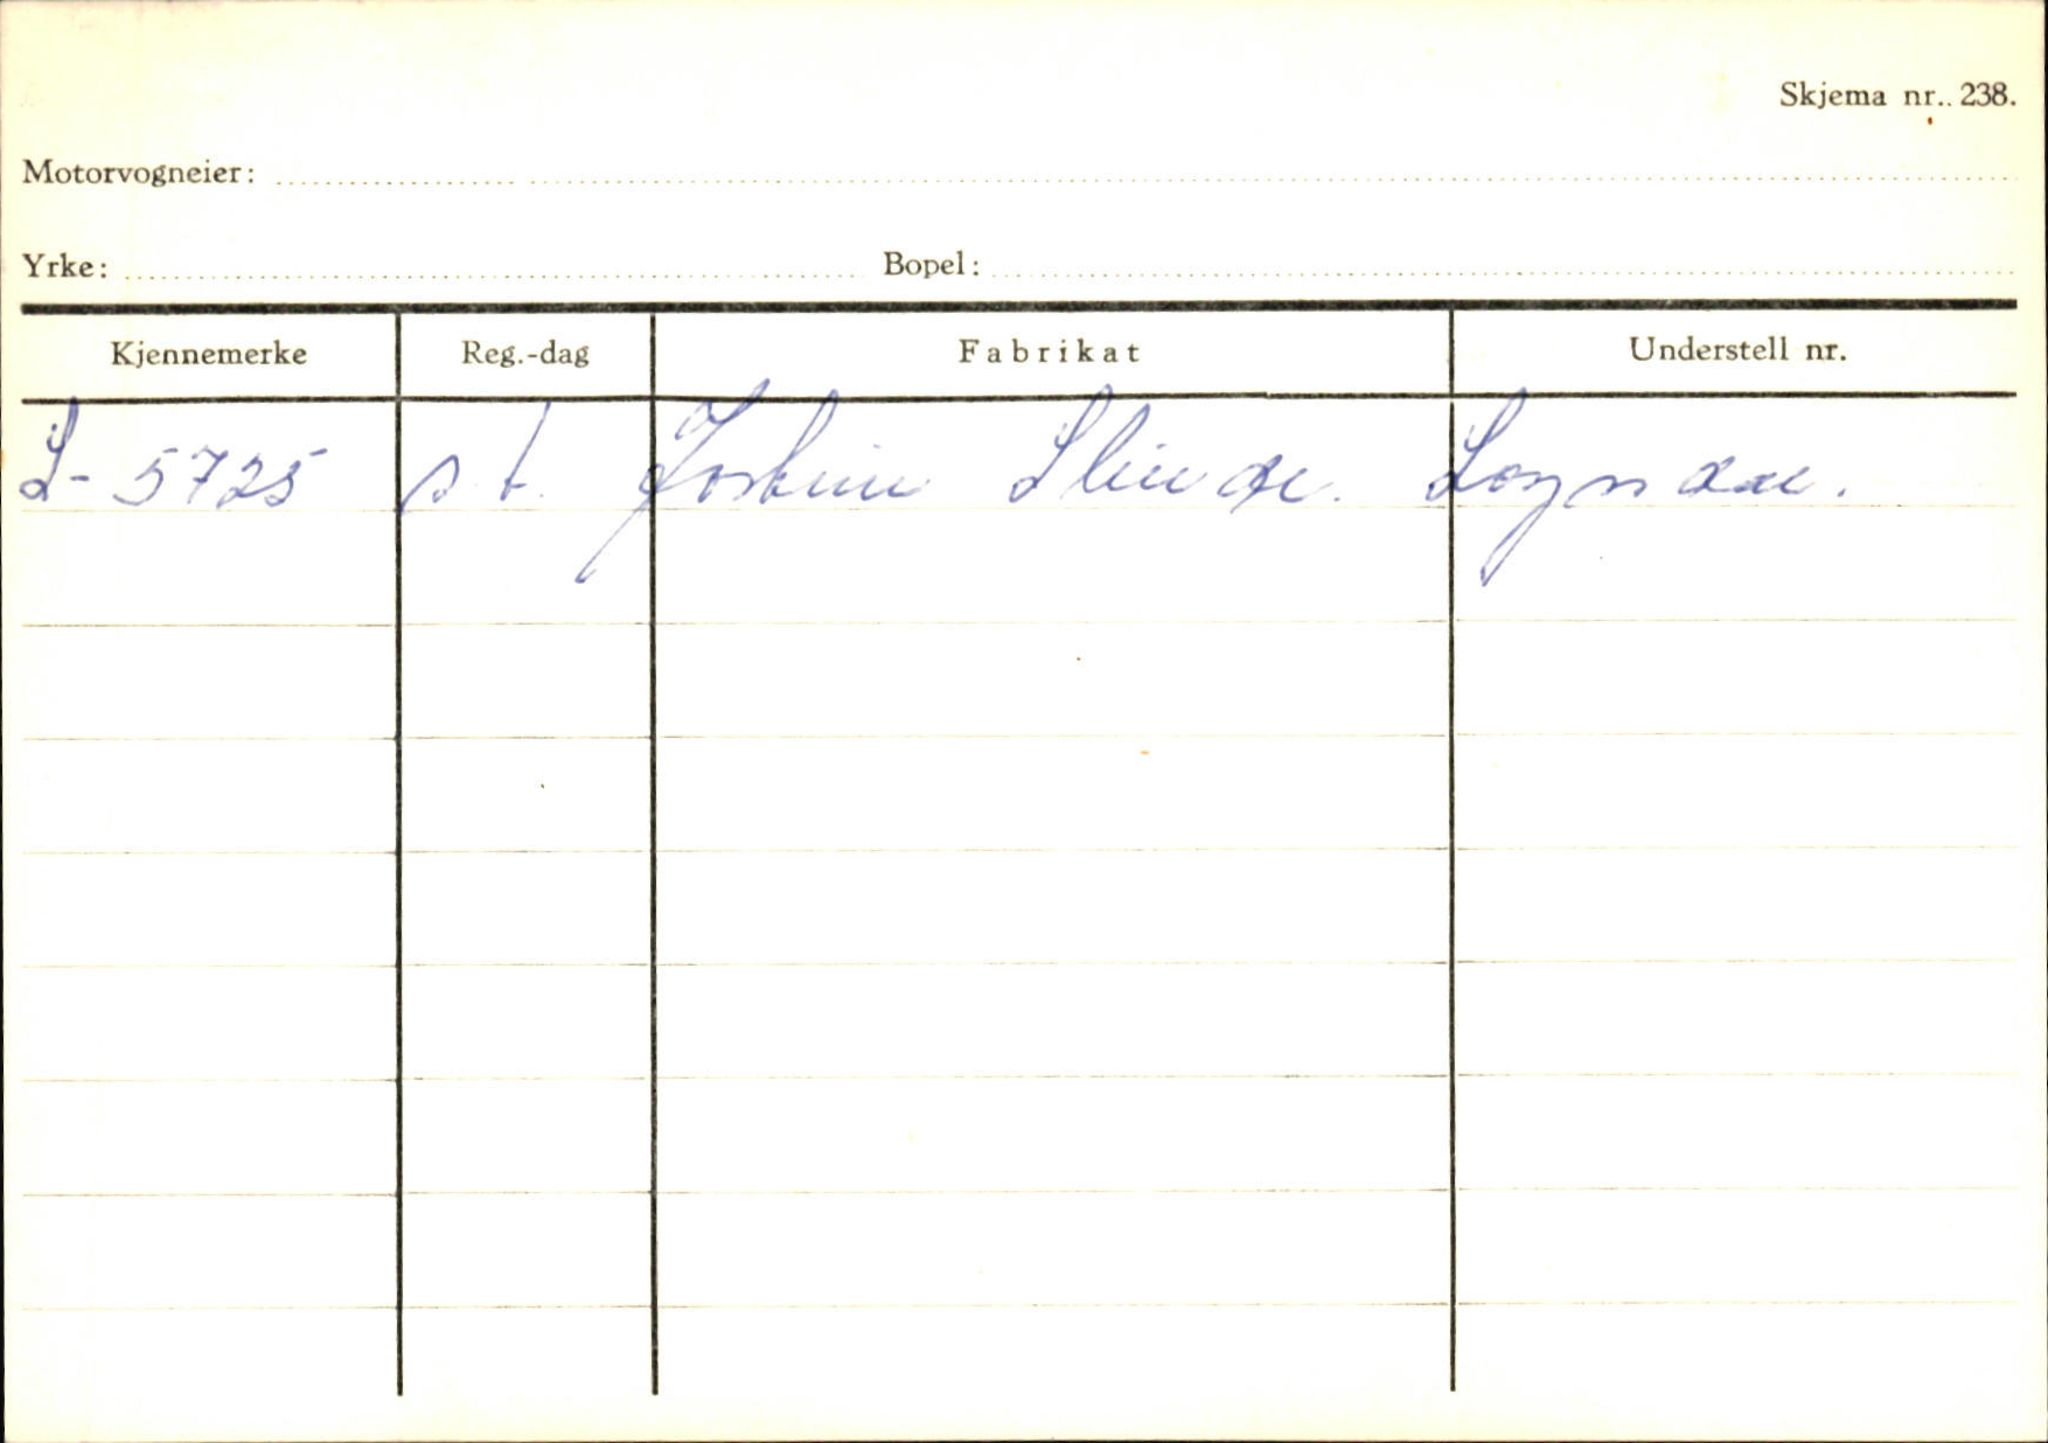 Skjema nr.. 238.
Motorvogneier:
Yrke: Bopel:
Kjennemerke Reg.-dag Fabrikat Understell nr.
S- 5725 s.t. Jostein Slinde. Sogndal.